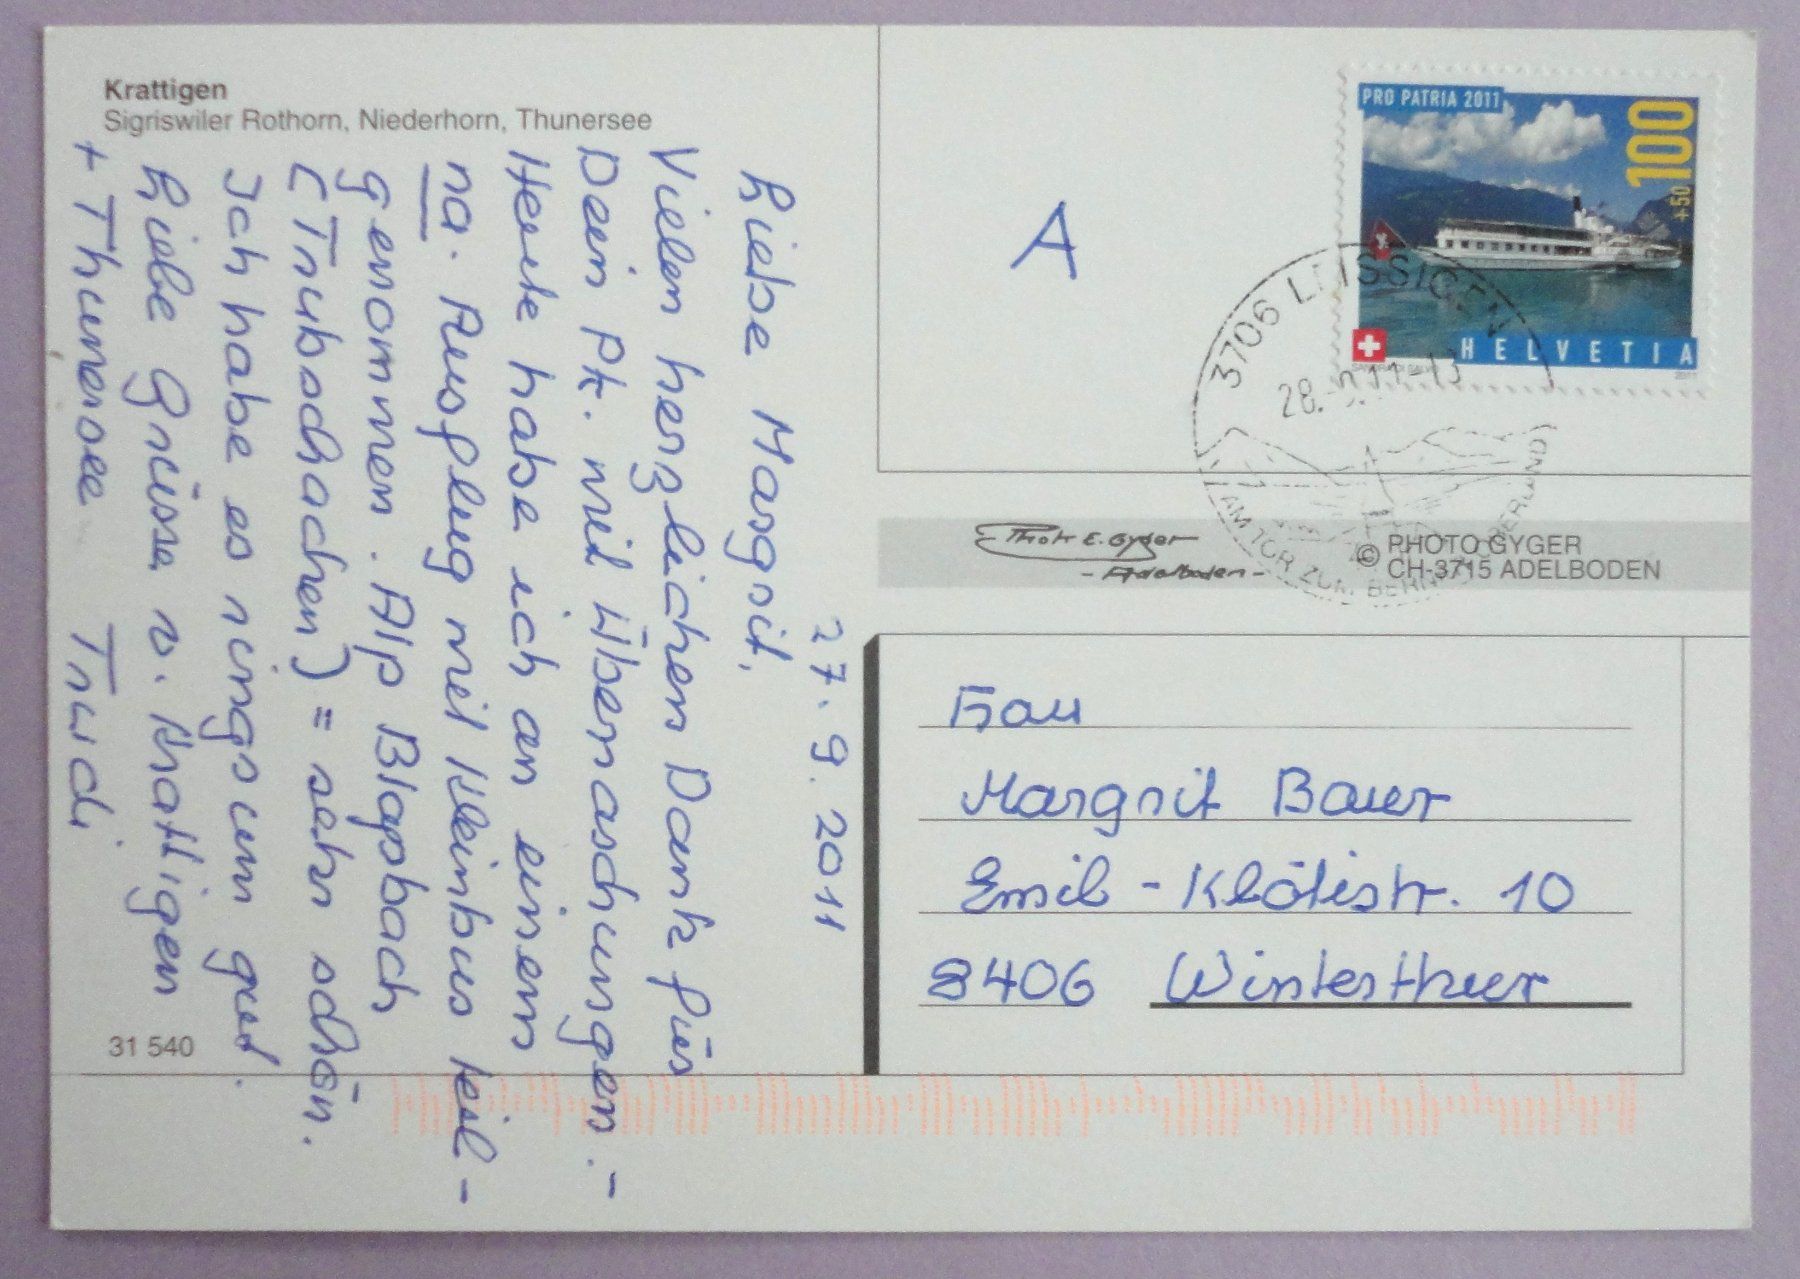 Krattigen
Sigriswiler Rothorn, Niederhorn, Thunersee
27.9.2011
Liebe Margrit,
Vielen herzlichen Dank für
Dein Pk. mit Überraschungen.-
Heute habe ich an einem
na. Ausflug mit Kleinbus teil-
genommen. Alp Blapbach
(Trubschachen) = sehr schön.
Ich habe es rings um gut.
Liebe Grüsse v. Krattigen
+ Thunersee Trudi
31 540
A
PRO PATRIA 2011
100
+50
HELVETIA
2011
3706 LEISSIGEN
AM TOR ZUM BERNER OBERLAND
Photo E. Gyger
- Adelboden -
© PHOTO GYGER
CH-3715 ADELBODEN
Frau
Margrit Bauer
Emil-Klötistr. 10
8406 Winterthur